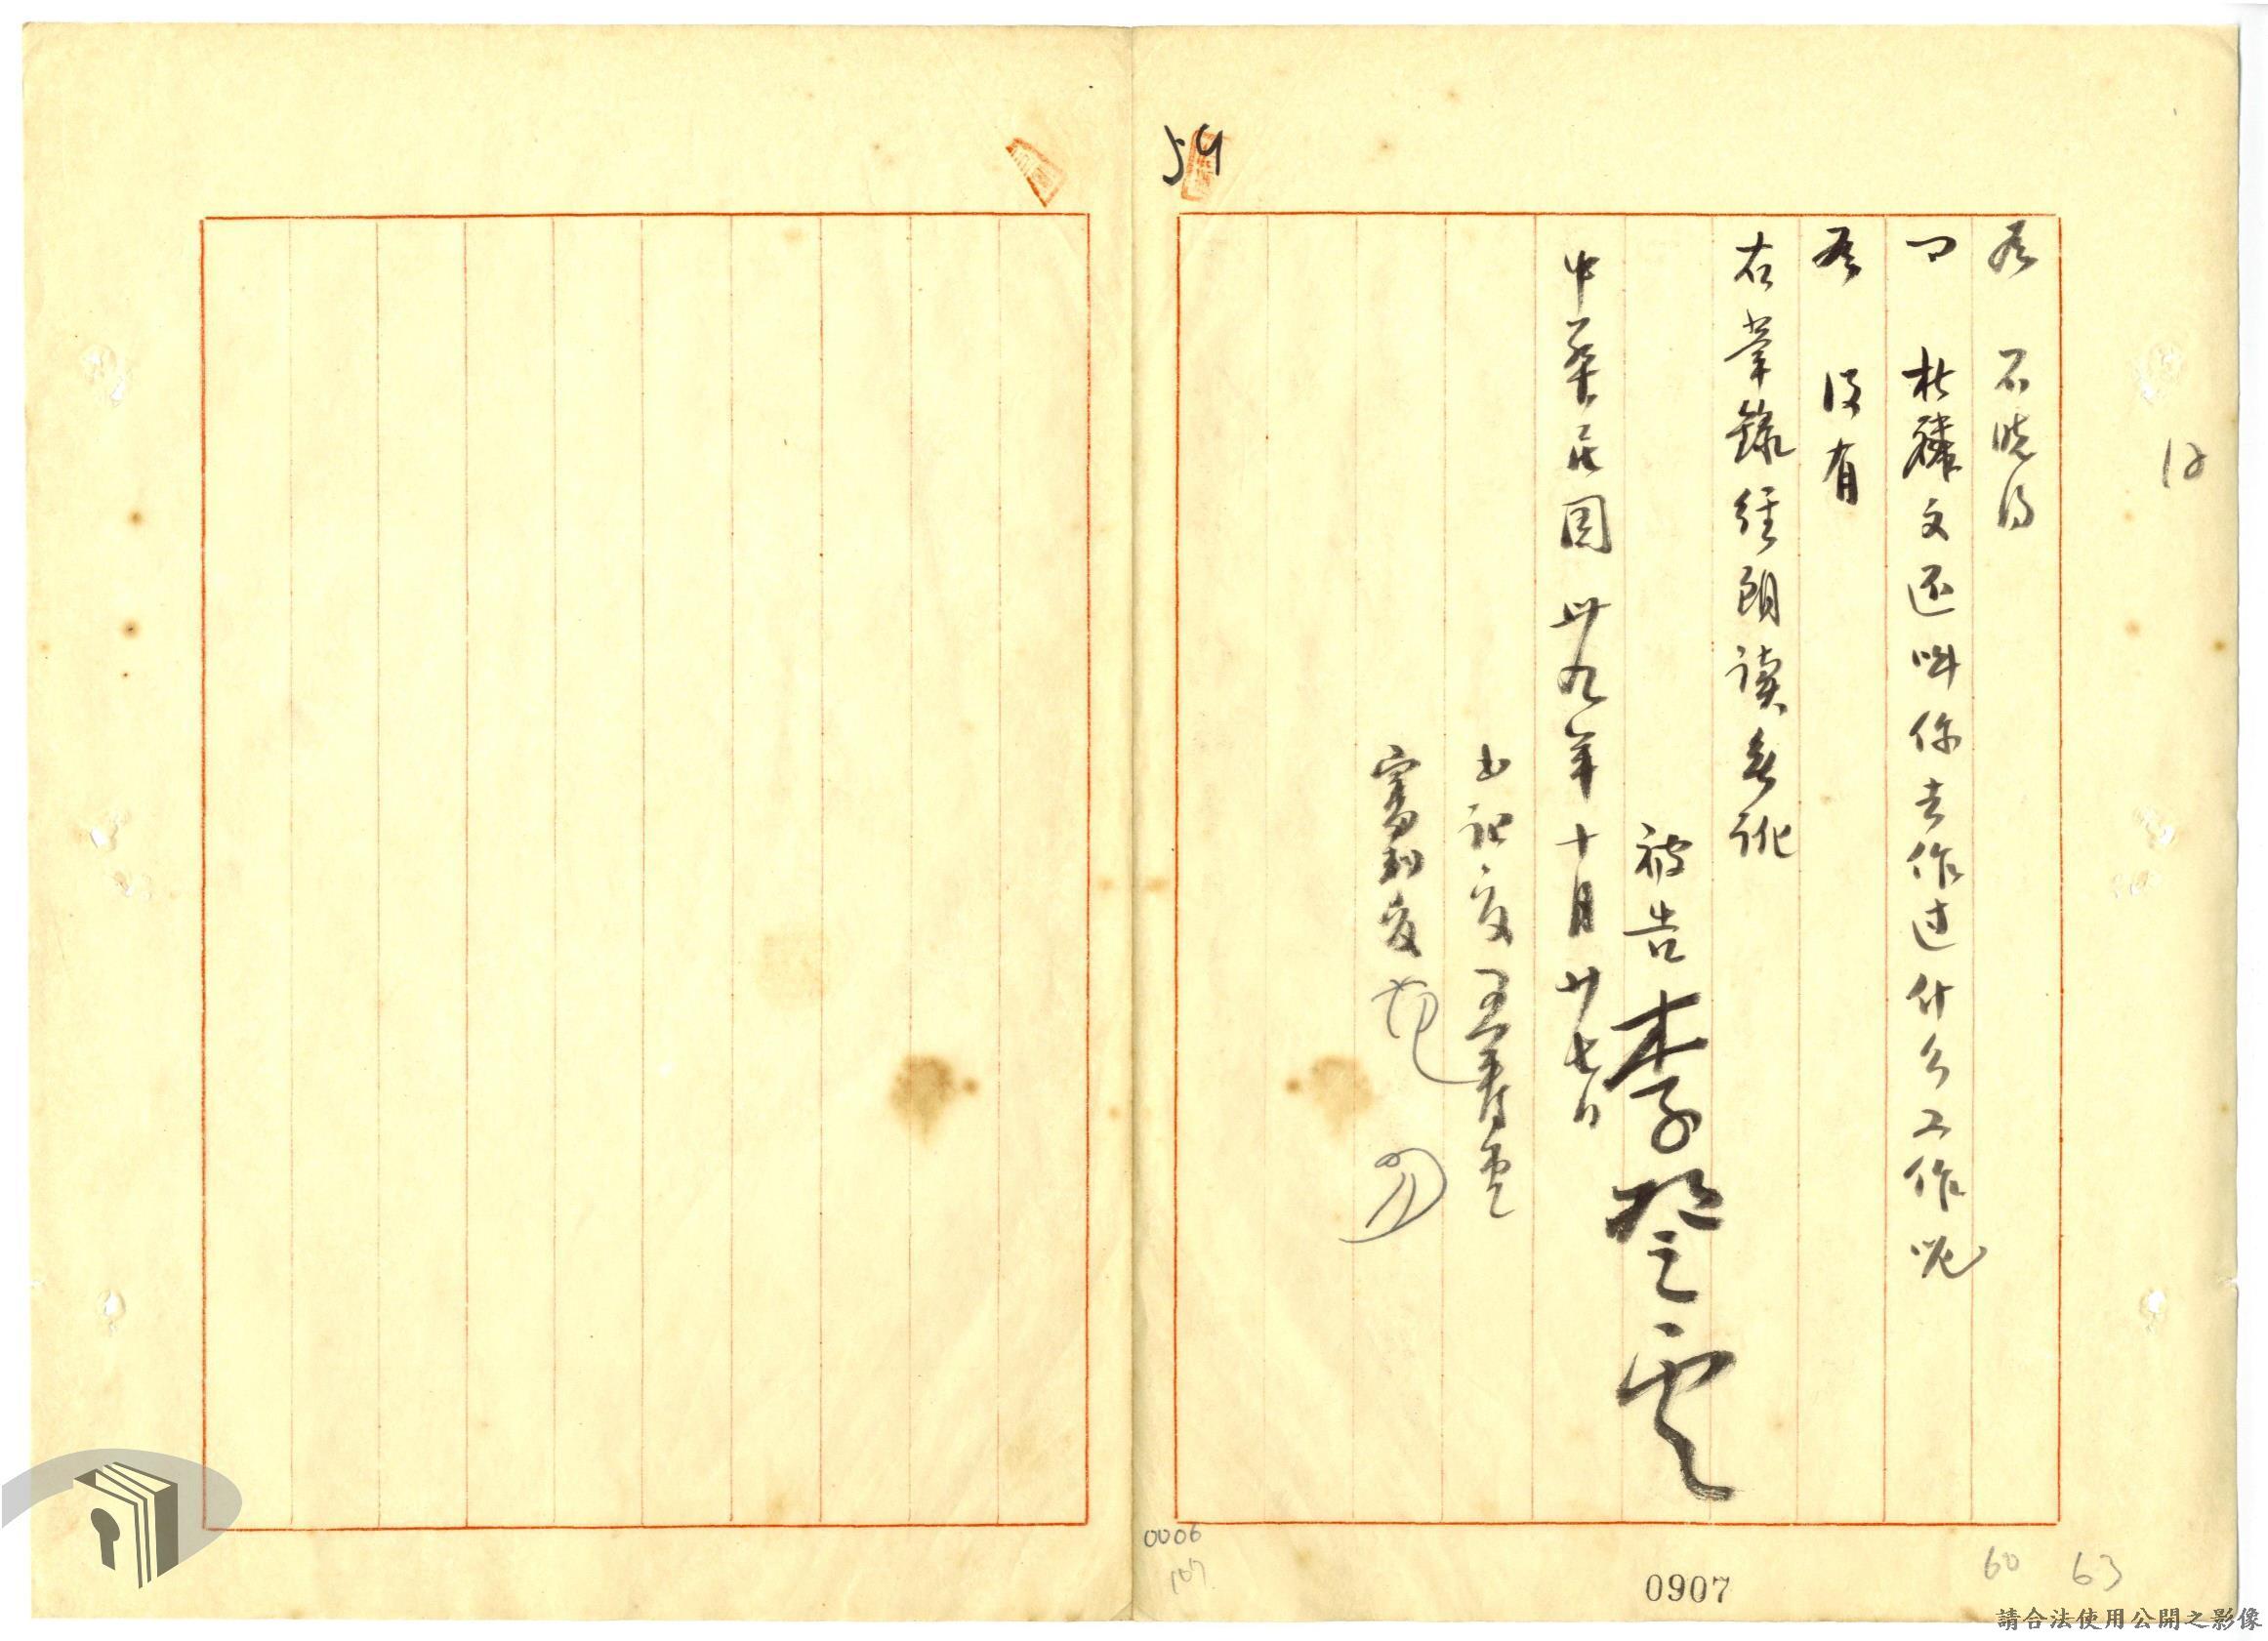 59
12
答 不晓得
問 杜麟文还叫你去作过什么工作呢
答 没有
右筆錄経朗读無訛
被告 李登雲
中華民国卅九年十月廿七日
書記官 王春雲
審判官
0006
107
0907
60
63
請合法使用公開之影像